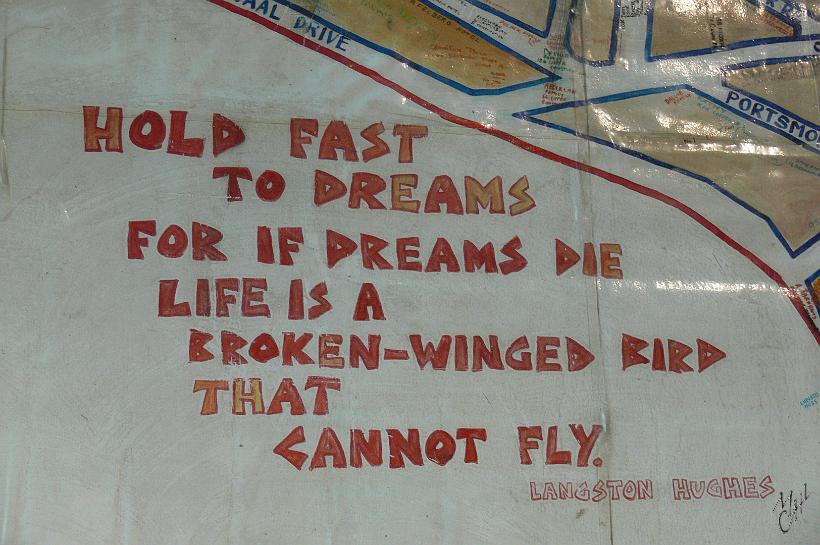 DRIVE
PORTSMO
HOLD FAST
TO DREAMS
FOR IF DREAMS DIE
LIFE IS A
BROKEN-WINGED BIRD
THAT
CANNOT FLY.
LANGSTON HUGHES